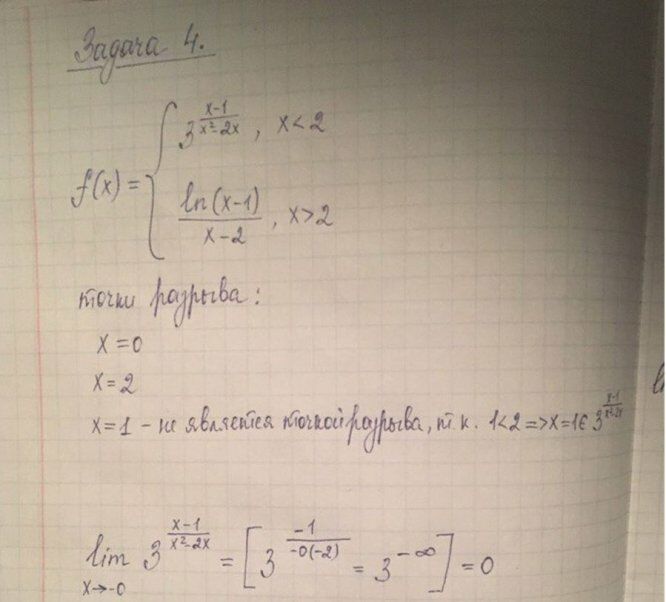 Задача 4.
f(x) = { 3^((x-1)/(x²-2x)), x<2
ln(x-1)/(x-2), x>2
точки разрыва:
x=0
x=2
x=1 - не является точкой разрыва, т.к. 1<2 => x=1 ∈ 3^((x-1)/(x²-2x))
lim x→-0 3^((x-1)/(x²-2x)) = [3^(-1/(-0(-2))) = 3^(-∞)] = 0